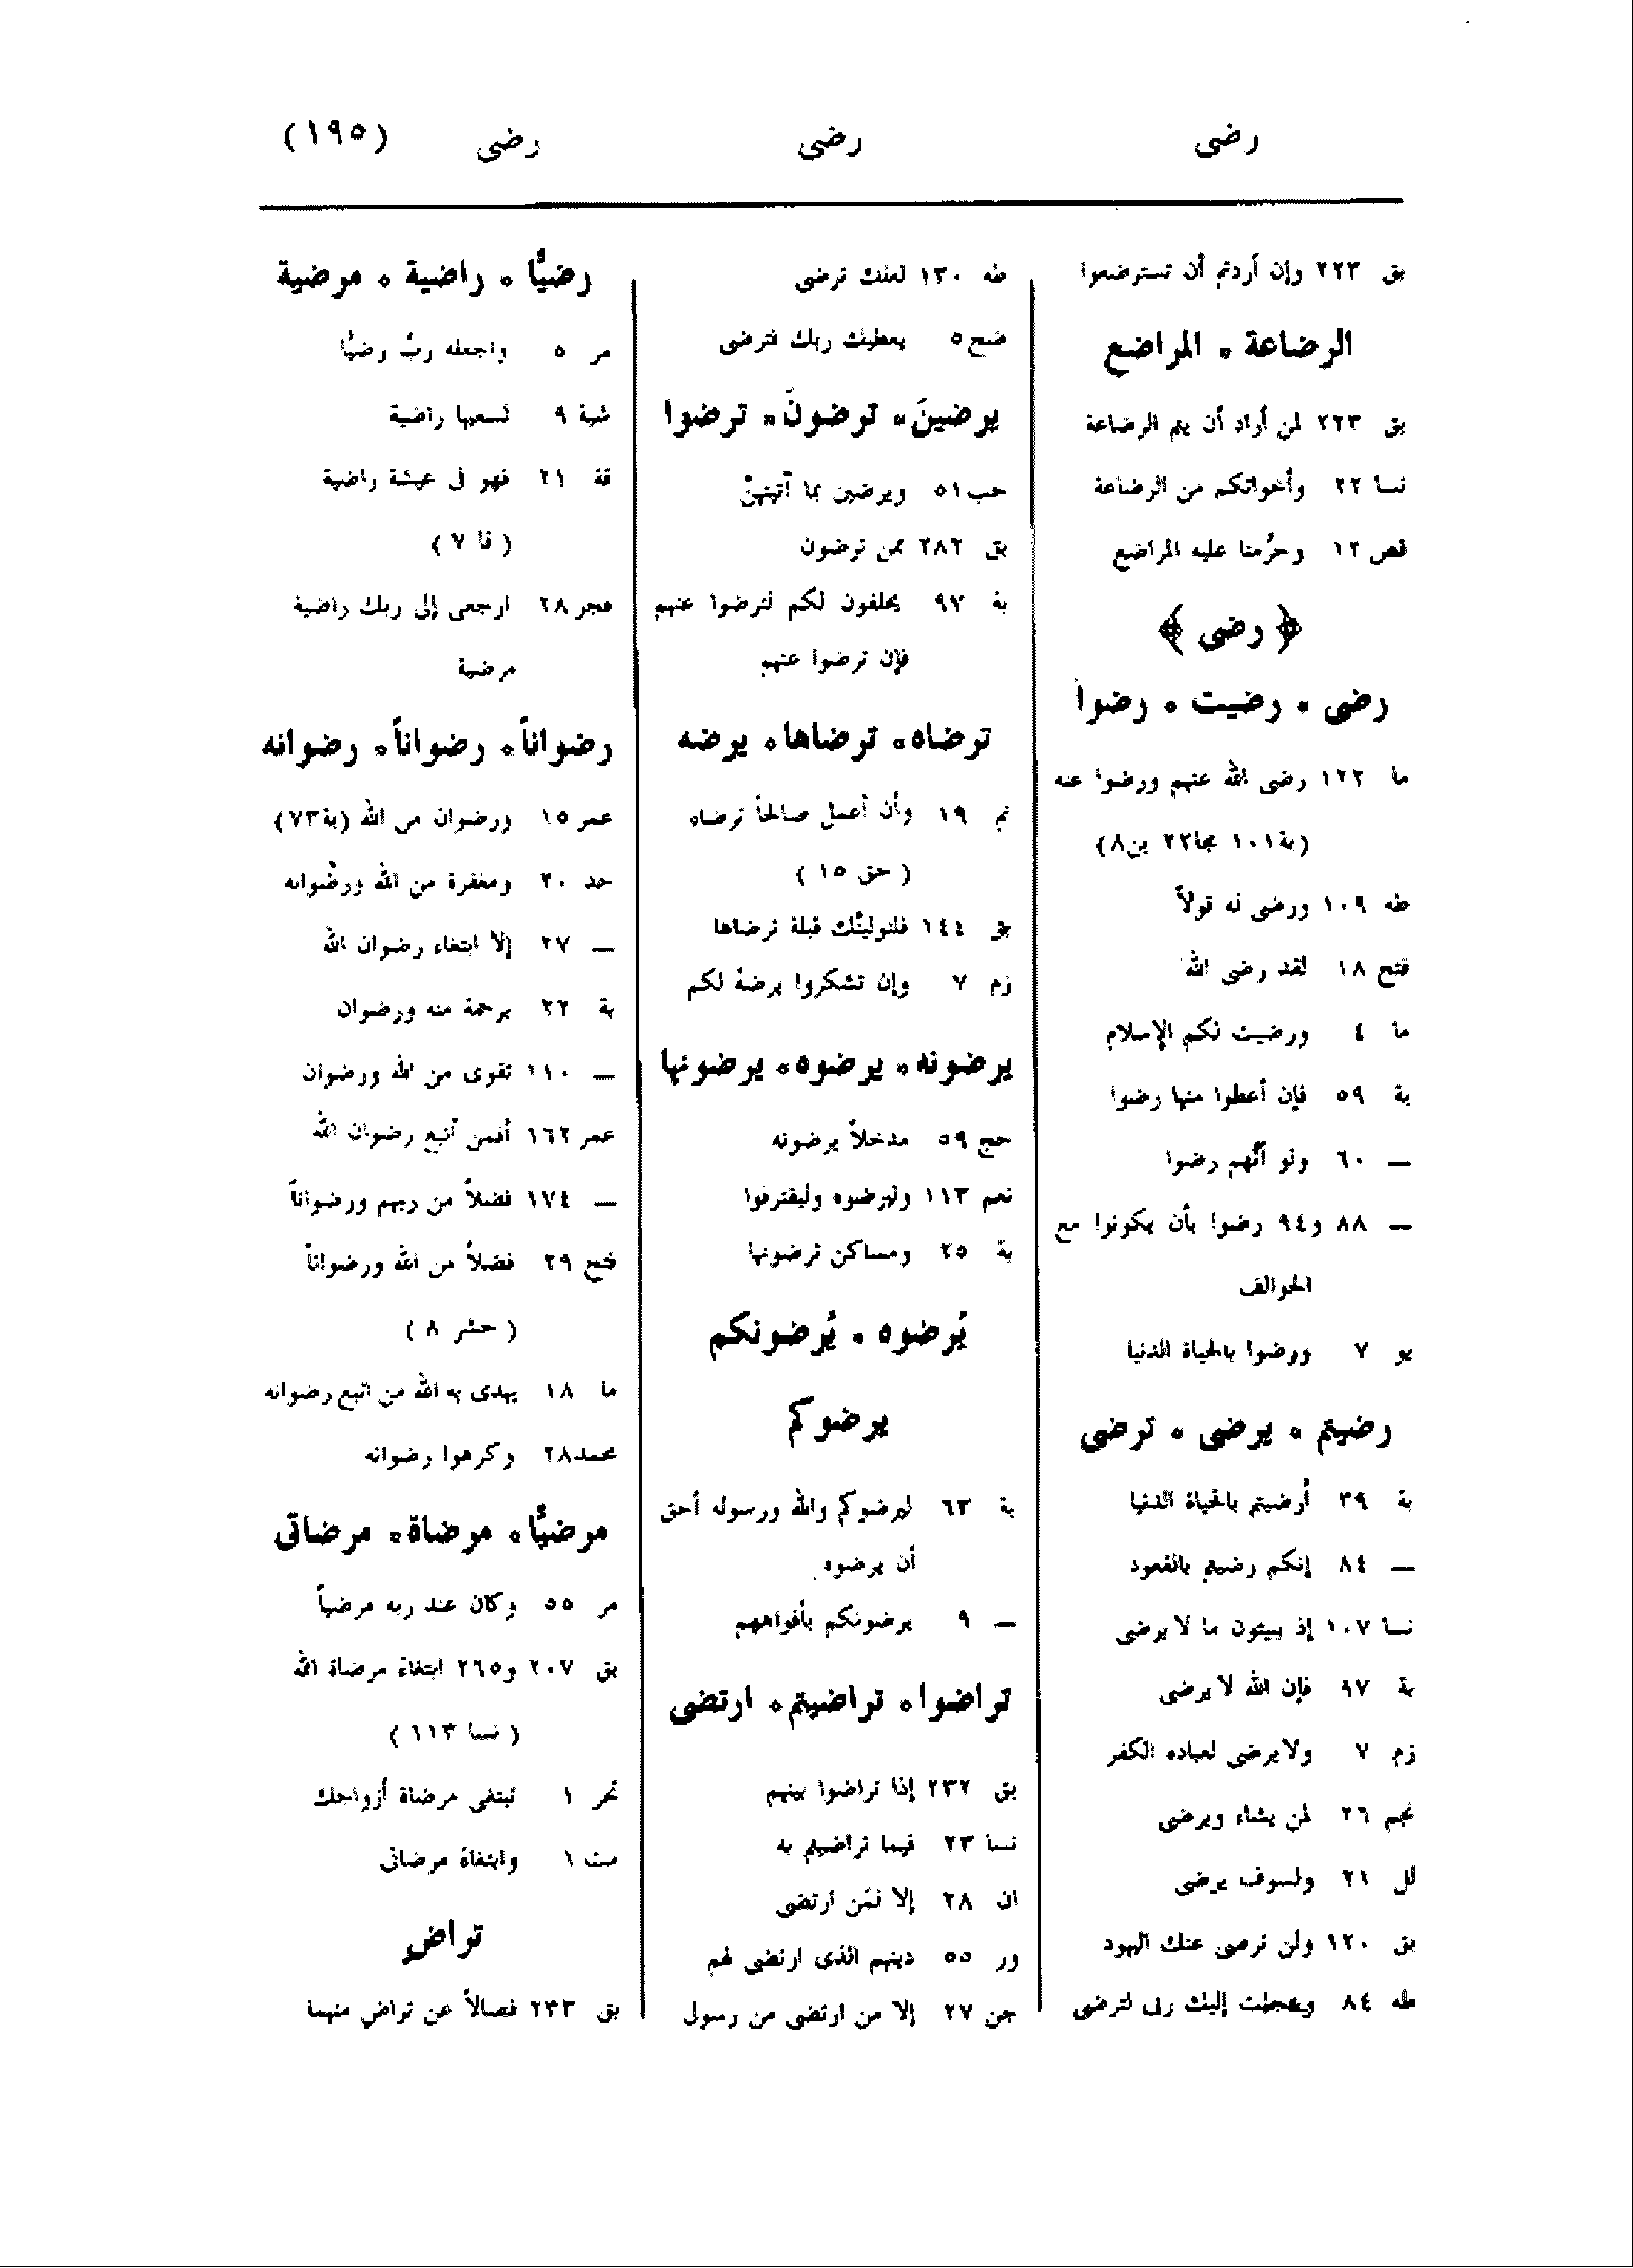 رضى رضى رضى (١٩٥)
بق ٢٢٣ وإن أردتم أن تسترضعوا
الرضاعة • المراضع
بق ٢٢٣ لمن أراد أن يتم الرضاعة
نسا ٢٢ وأخواتكم من الرضاعة
قص ١٢ وحرّمنا عليه المراضع
﴿ رضى ﴾
رضى • رضيت • رضوا
ما ١٢٢ رضى الله عنهم ورضوا عنه
(بة١٠١ مجا٢٢ ين٨)
طه ١٠٩ ورضى له قولاً
فتح ١٨ لقد رضى الله
ما ٤ ورضيت لكم الإسلام
بة ٥٩ فإن أعطوا منها رضوا
— ٦٠ ولو أنّهم رضوا
— ٨٨ و٩٤ رضوا بأن يكونوا مع
الخوالف
يو ٧ ورضوا بالحياة الدنيا
رضيتم • يرضى • ترضى
بة ٣٩ أرضيتم بالحياة الدنيا
— ٨٤ إنكم رضيتم بالقعود
نسا ١٠٧ إذ يبيتون ما لا يرضى
بة ٩٧ فإن الله لا يرضى
زم ٧ ولا يرضى لعباده الكفر
نجم ٢٦ لمن يشاء ويرضى
لل ٢١ ولسوف يرضى
بق ١٢٠ ولن ترضى عنك اليهود
طه ٨٤ وعجلت إليك ربى لترضى
طه ١٣٠ لعلك ترضى
ضح ٥ يعطيك ربك فترضى
يرضينَ • ترضونَ • ترضوا
حب ٥١ ويرضين بما آتيتهنّ
بق ٢٨٢ ممن ترضون
بة ٩٧ يحلفون لكم لترضوا عنهم
فإن ترضوا عنهم
ترضاه • ترضاها • يرضه
نم ١٩ وأن أعمل صالحاً ترضاه
( حق ١٥ )
بق ١٤٤ فلنولينّك قبلة ترضاها
زم ٧ وإن تشكروا يرضهُ لكم
يرضونه • يرضوه • يرضونها
حج ٥٩ مدخلاً يرضونه
نعم ١١٣ وليرضوه وليقترفوا
بة ٢٥ ومساكن ترضونها
يُرضوه • يُرضونكم
يرضوكم
بة ٦٣ ليرضوكم والله ورسوله أحق
أن يرضوه
— ٩ يرضونكم بأفواههم
تراضوا • تراضيتم • ارتضى
بق ٢٣٢ إذا تراضوا بينهم
نسا ٢٣ فيما تراضيتم به
ان ٢٨ إلا لمن ارتضى
ور ٥٥ دينهم الذى ارتضى لهم
جن ٢٧ إلا من ارتضى من رسول
رضيًّا • راضية • مرضية
مر ٥ واجعله ربّ رضيًّا
شية ٩ لسعيها راضية
قة ٢١ فهو فى عيشة راضية
( قا ٧ )
فجر ٢٨ ارجعى إلى ربك راضية
مرضية
رضواناً • رضواناً • رضوانه
عمر ١٥ ورضوان من الله (بة٧٣)
حد ٢٠ ومغفرة من الله ورضوانه
— ٢٧ إلا ابتغاء رضوان الله
بة ٢٢ برحمة منه ورضوان
— ١١٠ تقوى من الله ورضوان
عمر ١٦٢ أفمن أتبع رضوان الله
— ١٧٤ فضلاً من ربهم ورضواناً
فتح ٢٩ فضلاً من الله ورضواناً
( حشر ٨ )
ما ١٨ يهدى به الله من اتبع رضوانه
محمد ٢٨ وكرهوا رضوانه
مرضيًّا • مرضاة • مرضاتى
مر ٥٥ وكان عند ربه مرضياً
بق ٢٠٧ و٢٦٥ ابتغاء مرضاة الله
( نسا ١١٣ )
تحر ١ تبتغى مرضاة أزواجك
مت ١ وابتغاء مرضاتى
تراضٍ
بق ٢٣٣ فصالاً عن تراض منهما